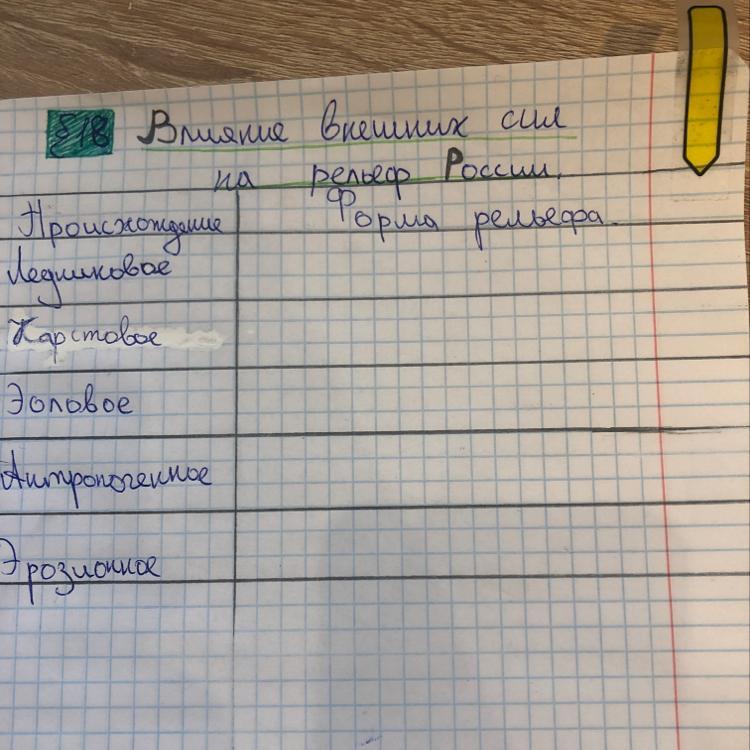 §18 Влияние внешних сил
на рельеф России.
Происхождение Форма рельефа.
Ледниковое
Карстовое
Эоловое
Антропогенное
Эрозионное